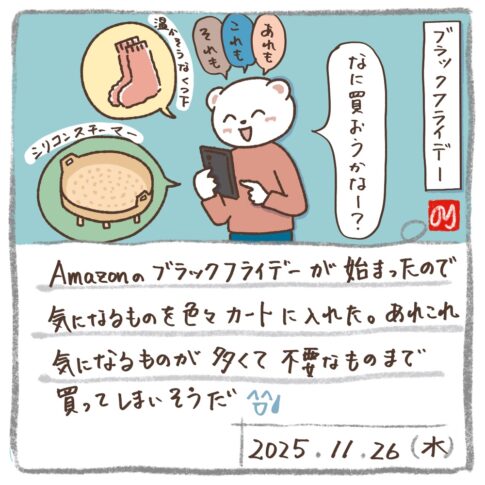 ブラックフライデー
なに買おうかなー？
あれも
これも
それも
温かそうなくつ下
シリコンスチーマー
Amazonのブラックフライデーが始まったので
気になるものを色々カートに入れた。あれこれ
気になるものが多くて不要なものまで
買ってしまいそうだ
2025.11.26（水）